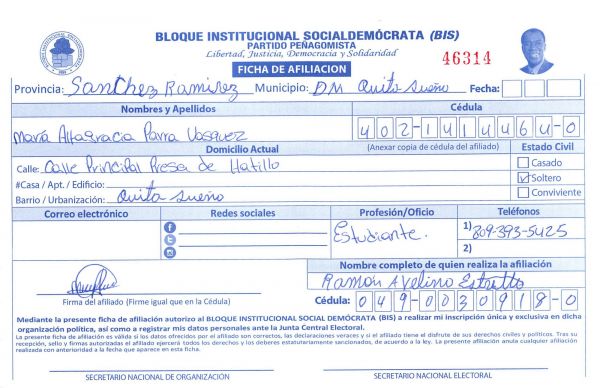 BLOQUE INSTITUCIONAL SOCIALDEMÓCRATA (BIS)
PARTIDO PEÑAGOMISTA
Libertad, Justicia, Democracia y Solidaridad
46314
FICHA DE AFILIACION
Provincia: Sanchez Ramirez Municipio: DM Quita Sueño Fecha:
Nombres y Apellidos Cédula
María Altagracia Parra Vasquez 402-1414464-0
Domicilio Actual (Anexar copia de cédula del afiliado) Estado Civil
Calle: Calle Principal Presa de Hatillo Casado
#Casa / Apt. / Edificio: Soltero
Barrio / Urbanización: Quita Sueño Conviviente
Correo electrónico Redes sociales Profesión/Oficio Teléfonos
Estudiante. 1) 809-393-5425
2)
Nombre completo de quien realiza la afiliación
Ramón Avelino
Firma del afiliado (Firme igual que en la Cédula) Cédula: 049-0030918-0
Mediante la presente ficha de afiliación autorizo al BLOQUE INSTITUCIONAL SOCIAL DEMÓCRATA (BIS) a realizar mi inscripción única y exclusiva en dicha
organización política, así como a registrar mis datos personales ante la Junta Central Electoral.
La presente ficha de afiliación es válida si los datos ofrecidos por el afiliado son correctos, las declaraciones veraces y si el afiliado tiene el disfrute de sus derechos civiles y políticos. Tras su
recepción, sello y firmas autorizadas el afiliado ejercerá todos los derechos y los deberes estatutariamente sancionados, de acuerdo a la ley. La presente afiliación anula cualquier afiliación
realizada con anterioridad a la fecha que aparece en esta ficha.
SECRETARIO NACIONAL DE ORGANIZACIÓN SECRETARIO NACIONAL ELECTORAL